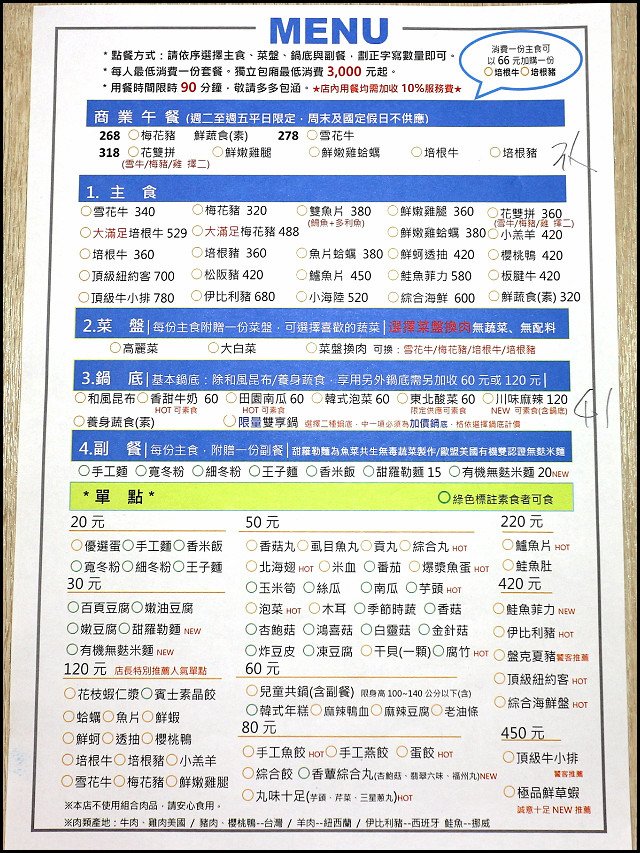 MENU
* 點餐方式：請依序選擇主食、菜盤、鍋底與副餐，劃正字寫數量即可。
* 每人最低消費一份套餐。獨立包廂最低消費 3,000 元起。
* 用餐時間限時 90 分鐘，敬請多多包涵。★店內用餐均需加收 10%服務費★
消費一份主食可
以 66 元加購一份
○培根牛○培根豬
商業午餐 (週二至週五平日限定，周末及國定假日不供應)
268 ○梅花豬 鮮蔬食(素) 278 ○雪花牛
318 ○花雙拼 ○鮮嫩雞腿 ○鮮嫩雞蛤蠣 ○培根牛 ○培根豬
(雪牛/梅豬/雞 擇二)
1. 主 食
○雪花牛 340 ○梅花豬 320 ○雙魚片 380 ○鮮嫩雞腿 360 ○花雙拼 360
(鯛魚+多利魚) (雪牛/梅豬/雞 擇二)
○大滿足培根牛 529 ○大滿足梅花豬 488 ○鮮嫩雞蛤蠣 380 ○小羔羊 420
○培根牛 360 ○培根豬 360 ○魚片蛤蠣 380 ○鮮蚵透抽 420 ○櫻桃鴨 420
○頂級紐約客 700 ○松阪豬 420 ○鱸魚片 450 ○鮭魚菲力 580 ○板腱牛 420
○頂級牛小排 780 ○伊比利豬 680 ○小海陸 520 ○綜合海鮮 600 ○鮮蔬食(素) 320
2.菜 盤 | 每份主食附贈一份菜盤，可選擇喜歡的蔬菜 | 選擇菜盤換肉無蔬菜、無配料
○高麗菜 ○大白菜 ○菜盤換肉 可換：雪花牛/梅花豬/培根牛/培根豬
3.鍋 底 | 基本鍋底：除和風昆布/養身蔬食，享用另外鍋底需另加收 60 元或 120 元
○和風昆布○香甜牛奶 60 ○田園南瓜 60 ○韓式泡菜 60 ○東北酸菜 60 ○川味麻辣 120
HOT 可素食 HOT 可素食 限定供應 可素食 NEW 可素食(含鍋底)
○養身蔬食(素) ○限量雙享鍋 選擇二種鍋底，中一項必須為加價鍋底，恪依選擇鍋底計價
4.副 餐 | 每份主食，附贈一份副餐 | 甜羅勒麵為魚菜共生無毒蔬菜製作/歐盟美國有機雙認證無麩米麵
○手工麵 ○寬冬粉 ○細冬粉 ○王子麵 ○香米飯 ○甜羅勒麵 15 ○有機無麩米麵 20NEW
*單 點* ○綠色標註素食者可食
20 元
○優選蛋○手工麵○香米飯
○寬冬粉○細冬粉○王子麵
30 元
○百頁豆腐○嫩油豆腐
○嫩豆腐○甜羅勒麵 NEW
○有機無麩米麵 NEW
120 元 店長特別推薦人氣單點
○花枝蝦仁漿○賓士素晶餃
○蛤蠣○魚片○鮮蝦
○鮮蚵○透抽○櫻桃鴨
○培根牛○培根豬○小羔羊
○雪花牛○梅花豬○鮮嫩雞腿
50 元
○香菇丸○虱目魚丸○貢丸○綜合丸 HOT
○北海翅 HOT ○米血 ○番茄 ○爆漿魚蛋 HOT
○玉米筍 ○絲瓜 ○南瓜 ○芋頭 HOT
○泡菜 HOT ○木耳 ○季節時蔬 ○香菇
○杏鮑菇 ○鴻喜菇 ○白靈菇 ○金針菇
○炸豆皮 ○凍豆腐 ○干貝(一顆)○腐竹 HOT
60 元
○兒童共鍋(含副餐) 限身高 100~140 公分以下(含)
○韓式年糕○麻辣鴨血○麻辣豆腐○老油條
80 元
○手工魚餃 HOT○手工燕餃 ○蛋餃 HOT
○綜合餃 ○香蕈綜合丸(杏鮑菇、翡翠六味、福州丸)NEW
○丸味十足(芋頭、芹菜、三星蔥丸)HOT
220 元
○鱸魚片 HOT
○鮭魚肚
420 元
○鮭魚菲力 NEW
○伊比利豬 HOT
○盤克夏豬 饕客推薦
○頂級紐約客 HOT
○綜合海鮮盤 HOT
450 元
○頂級牛小排
饕客推薦
○極品鮮草蝦
誠意十足 NEW 推薦
※本店不使用組合肉品，請安心食用。
※肉類產地：牛肉、雞肉美國 / 豬肉、櫻桃鴨--台灣 / 羊肉--紐西蘭 / 伊比利豬--西班牙 鮭魚--挪威